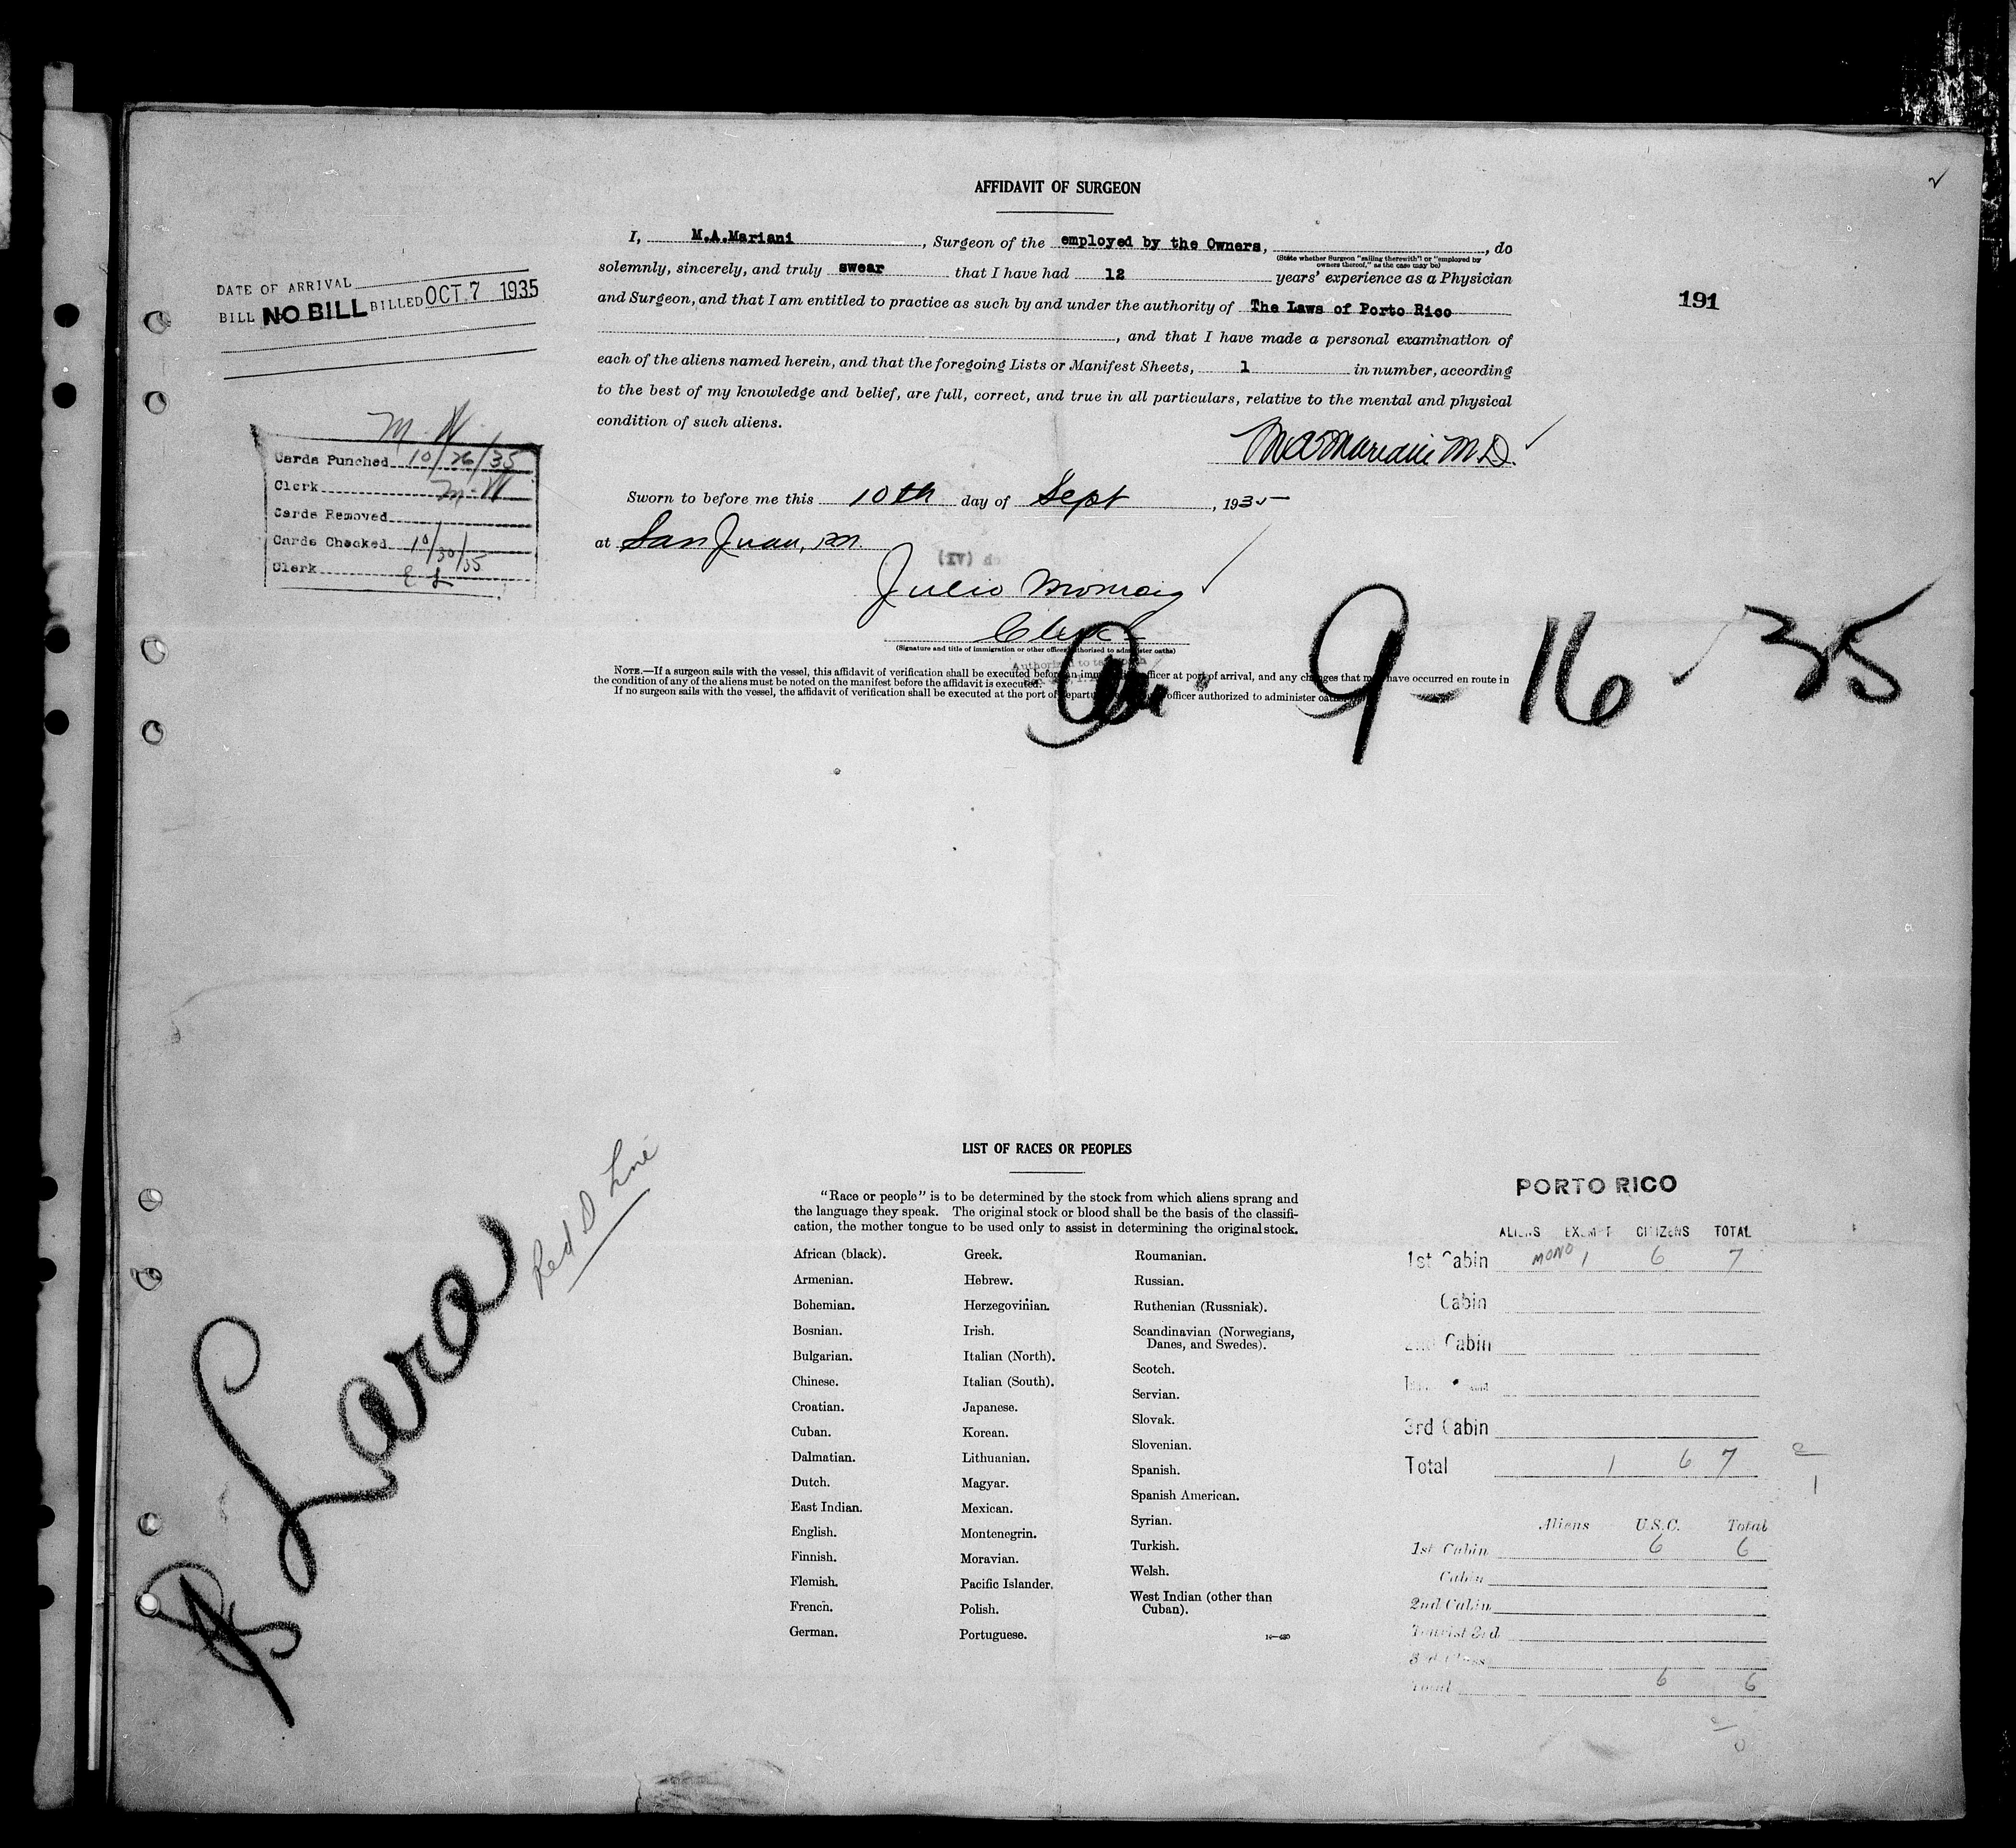 AFFIDAVIT OF SURGEON
I, M.A.Mariani, Surgeon of the employed by the Owners, , do
(State whether Surgeon "sailing therewith" or "employed by
owners thereof," as the case may be)
solemnly, sincerely, and truly swear that I have had 12 years' experience as a Physician
and Surgeon, and that I am entitled to practice as such by and under the authority of The Laws of Porto Rico
, and that I have made a personal examination of
each of the aliens named herein, and that the foregoing Lists or Manifest Sheets, 1 in number, according
to the best of my knowledge and belief, are full, correct, and true in all particulars, relative to the mental and physical
condition of such aliens.
M A Mariani M.D.
Sworn to before me this 10th day of Sept, 1935
at San Juan,
Julio
Clerk
(Signature and title of immigration or other officer authorized to administer oaths)
NOTE.—If a surgeon sails with the vessel, this affidavit of verification shall be executed before an immigration officer at port of arrival, and any changes that may have occurred en route in
the condition of any of the aliens must be noted on the manifest before the affidavit is executed.
If no surgeon sails with the vessel, the affidavit of verification shall be executed at the port of departure officer authorized to administer oaths.
191
DATE OF ARRIVAL
BILL NO BILL BILLED OCT 7 1935
M. W.
Cards Punched 10/26/35
Clerk M. W
Cards Removed
Cards Checked 10/30/35
Clerk E L
9-16-35
Lara
Red D Line
LIST OF RACES OR PEOPLES
"Race or people" is to be determined by the stock from which aliens sprang and
the language they speak. The original stock or blood shall be the basis of the classifi-
cation, the mother tongue to be used only to assist in determining the original stock.
African (black).
Armenian.
Bohemian.
Bosnian.
Bulgarian.
Chinese.
Croatian.
Cuban.
Dalmatian.
Dutch.
East Indian.
English.
Finnish.
Flemish.
French.
German.
Greek.
Hebrew.
Herzegovinian.
Irish.
Italian (North).
Italian (South).
Japanese.
Korean.
Lithuanian.
Magyar.
Mexican.
Montenegrin.
Moravian.
Pacific Islander.
Polish.
Portuguese.
Roumanian.
Russian.
Ruthenian (Russniak).
Scandinavian (Norwegians,
Danes, and Swedes).
Scotch.
Servian.
Slovak.
Slovenian.
Spanish.
Spanish American.
Syrian.
Turkish.
Welsh.
West Indian (other than
Cuban).
PORTO RICO
ALIENS EXEMPT CITIZENS TOTAL
1st Cabin MONO 1 6 7
Cabin
2nd Cabin
3rd Cabin
Total 1 6 7
2
1
Aliens U.S.C. Total
1st Cabin 6 6
Cabin
2nd Cabin
Tourist 3rd
3rd Class
Total 6 6
2
0